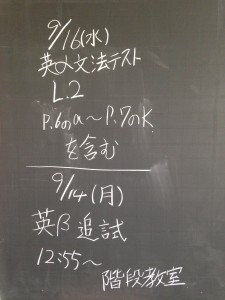 9/16(水)
英α文法テスト
L.2
P.6のα〜P.7のK.
を含む
9/14(月)
英β追試
12:55〜
階段教室